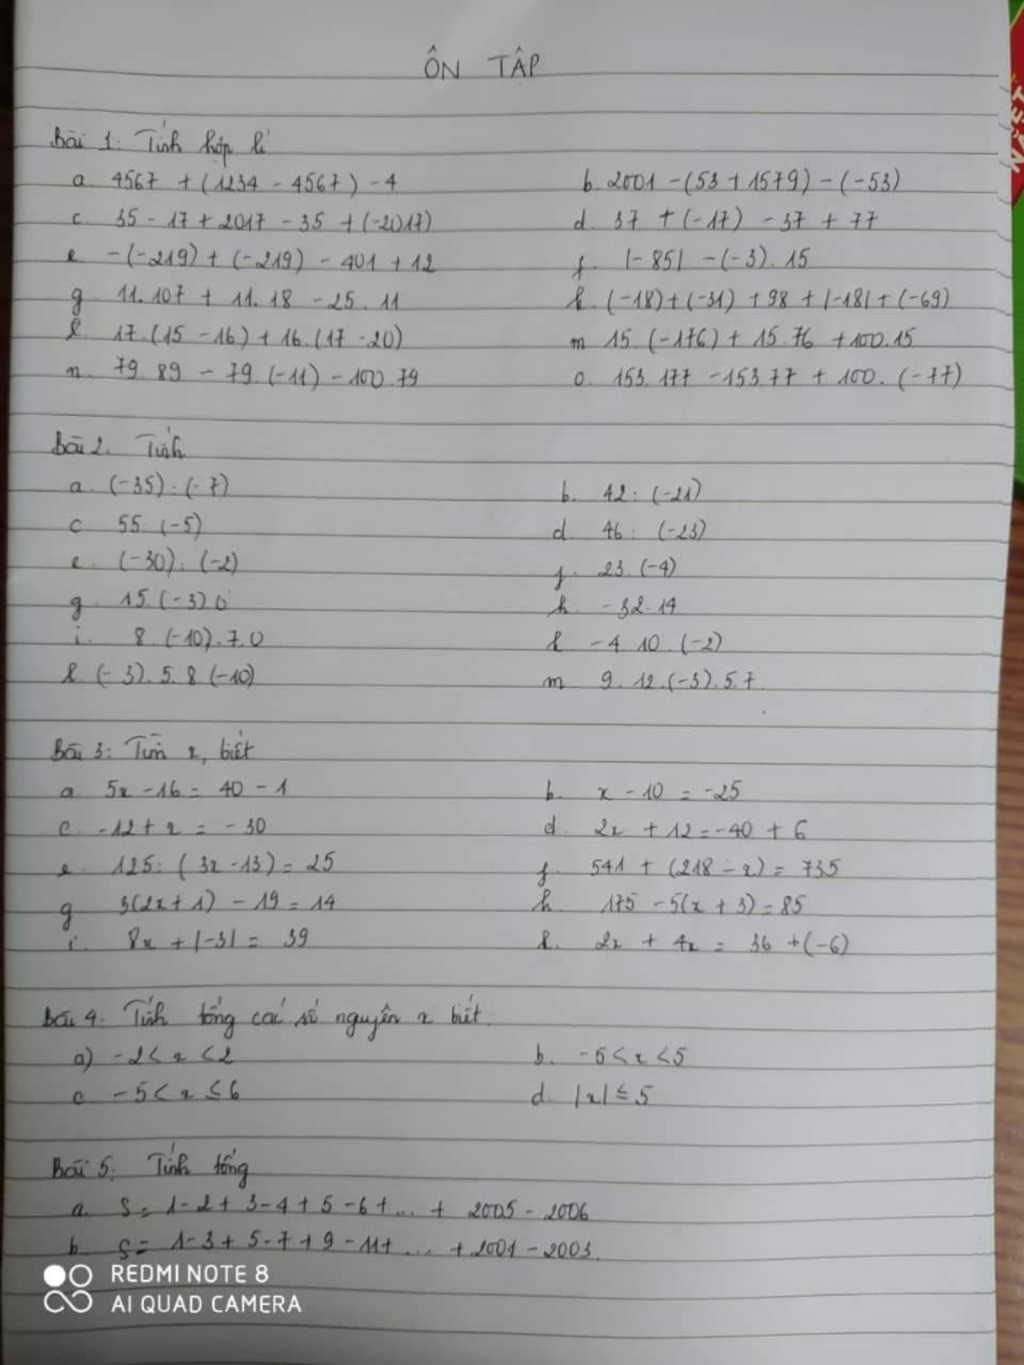 ÔN TẬP
Bài 1: Tính hợp lí
a. 4567 + (1234 - 4567) - 4 b. 2001 - (53 + 1579) - (-53)
c. 35 - 17 + 2017 - 35 + (-2017) d. 37 + (-17) - 37 + 77
e. -(-219) + (-219) - 401 + 12 f. |-85| - (-3). 15
g. 11. 107 + 11. 18 - 25. 11 k. (-18) + (-31) + 98 + |-18| + (-69)
l. 17. (15 - 16) + 16. (17 - 20) m. 15. (-176) + 15. 76 + 100. 15
n. 79. 89 - 79. (-11) - 100. 79 o. 153. 177 - 153. 77 + 100. (-77)
Bài 2. Tính
a. (-35) : (-7) b. 42 : (-21)
c. 55. (-5) d. 46 : (-23)
e. (-30) : (-2) f. 23. (-4)
g. 15. (-3). 0 h. -32. 14
i. 8. (-10). 7. 0 k. -4. 10. (-2)
l. (-3). 5. 8. (-10) m. 9. 12. (-3). 5. 7.
Bài 3: Tìm x, biết
a. 5x - 16 = 40 - 1 b. x - 10 = -25
c. -12 + x = -30 d. 2x + 12 = -40 + 6
e. 125 : (3x - 13) = 25 f. 541 + (218 - x) = 735
g. 3(2x + 1) - 19 = 14 h. 175 - 5(x + 3) = 85
i. 8x + |-3| = 39 k. 2x + 4x = 36 + (-6)
Bài 4. Tính tổng các số nguyên x biết.
a) -2 < x < 2 b. -5 < x < 5
c. -5 < x ≤ 6 d. |x| ≤ 5
Bài 5. Tính tổng
a. S = 1 - 2 + 3 - 4 + 5 - 6 + ... + 2005 - 2006
b. S = 1 - 3 + 5 - 7 + 9 - 11 + ... + 2001 - 2003
REDMI NOTE 8
AI QUAD CAMERA